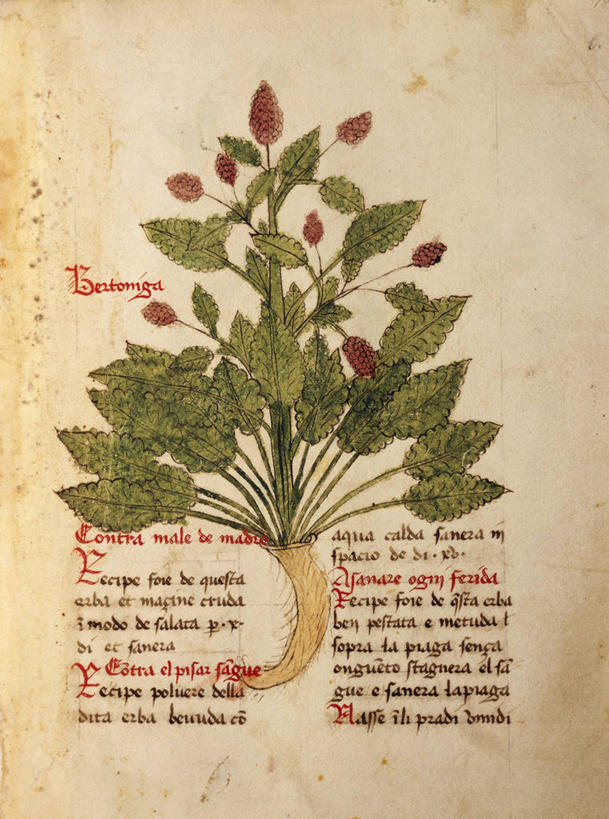 Bertoniga
Contra male de madre
Recipe foie de questa
erba et magine cruda
ĩ modo de salata p·x·
di et sanera
Cõtra el pisar sãgue
Recipe poluere della
dita erba beuuda cõ
aqua calda sanera in
spacio de di·xv·
Asanare ogni ferida
Recipe foie de q̃sta erba
ben pestata e metuda
sopra la piaga sença
onguẽto stagnera el sã
gue e sanera lapiaga
Nasse ĩ li pradi vmidi
6.